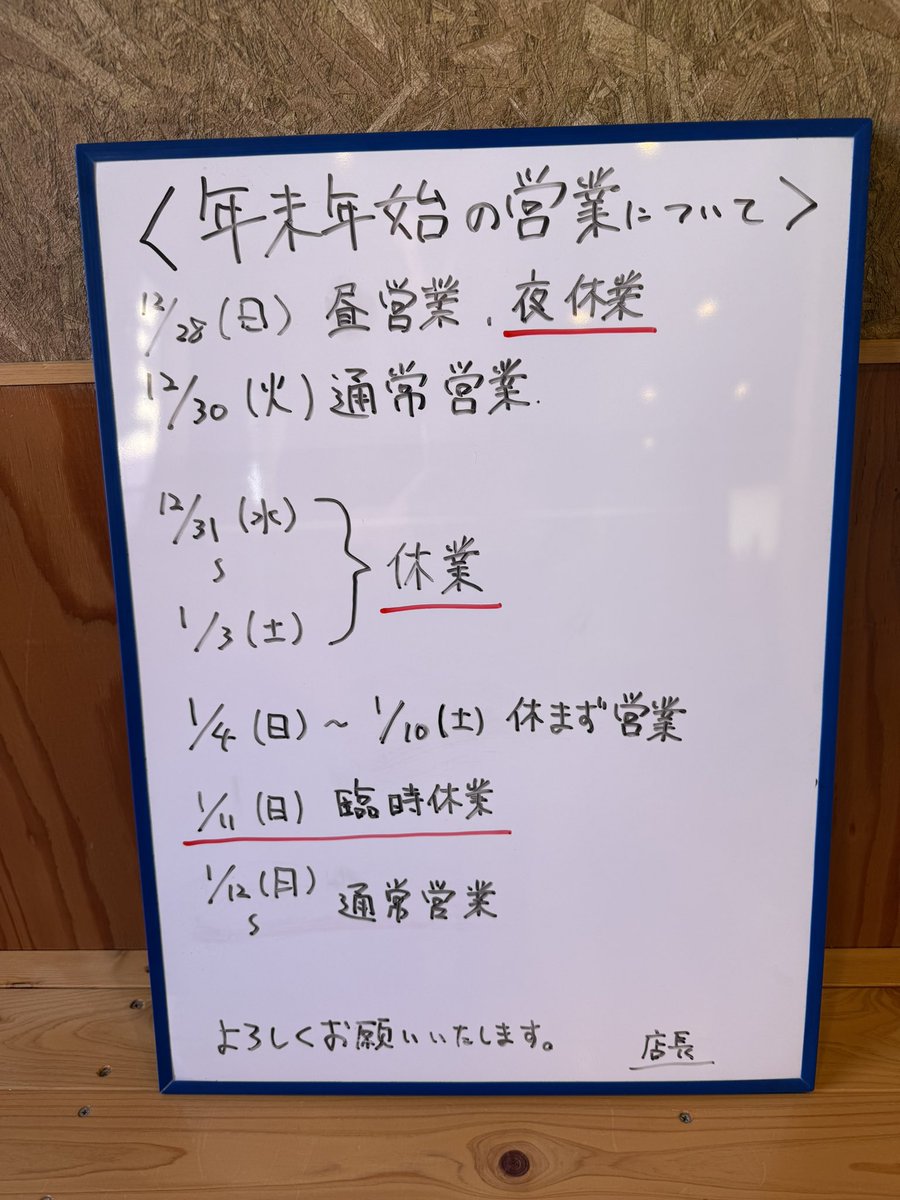 〈年末年始の営業について〉
12/28(日) 昼営業、夜休業
12/30(火)通常営業.
12/31(水)
〜
1/3(土)
休業
1/4(日)〜1/10(土)休まず営業
1/11(日)臨時休業
1/12(月)
〜
通常営業
よろしくお願いいたします。
店長